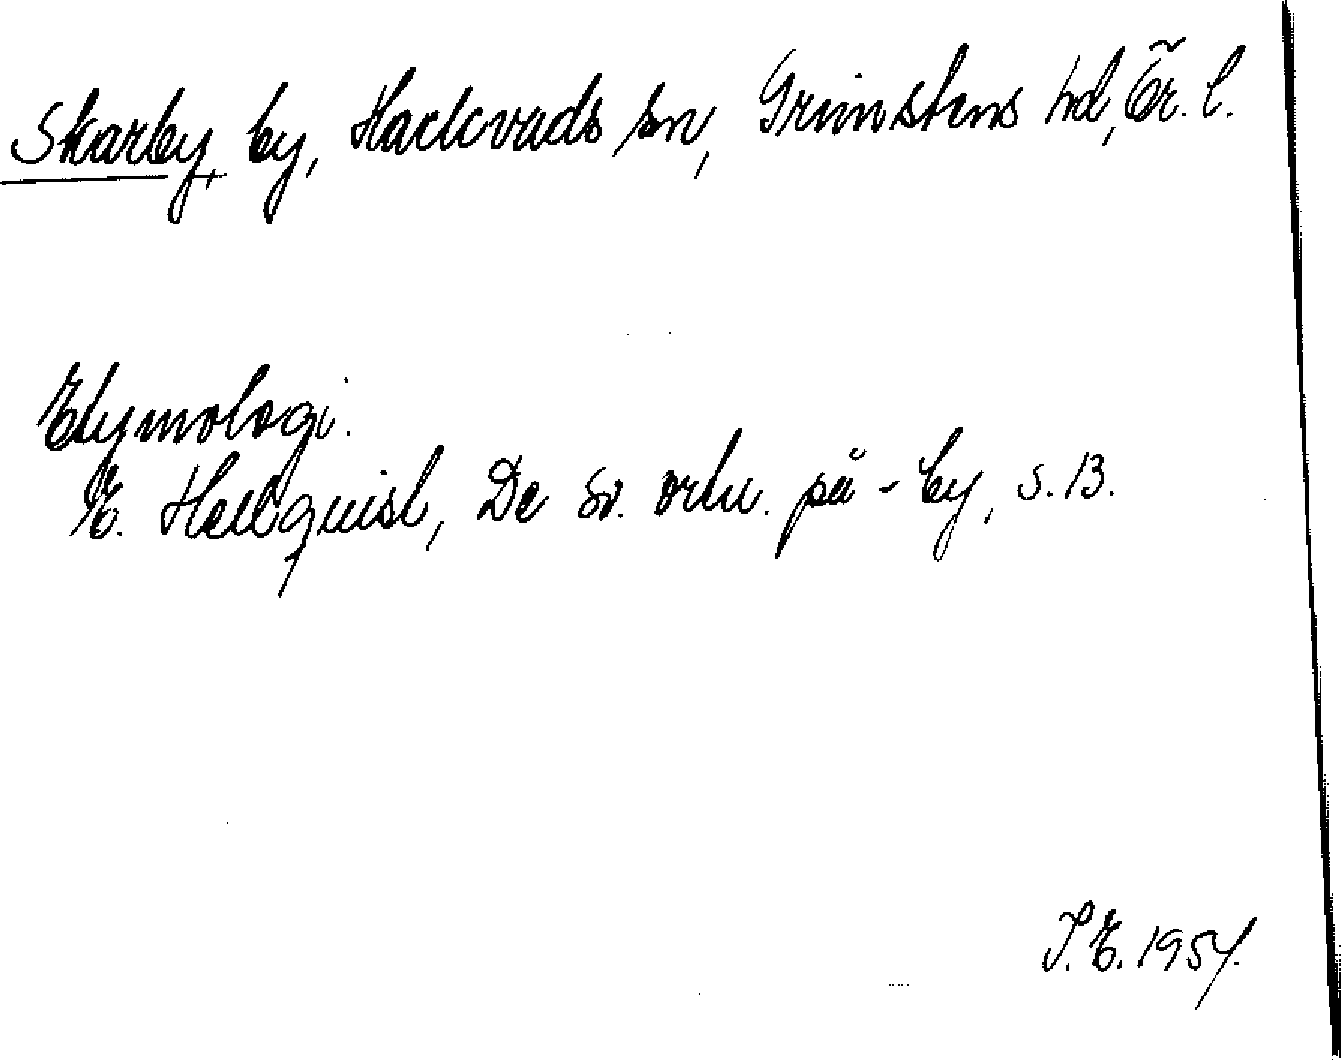 Skarby, by, Hackvads sn, Grimstens hd, Ör. l.
Etymologi.
E. Hellquist, De sv. ortn. på -by, s. 13.
I. E. 1954.